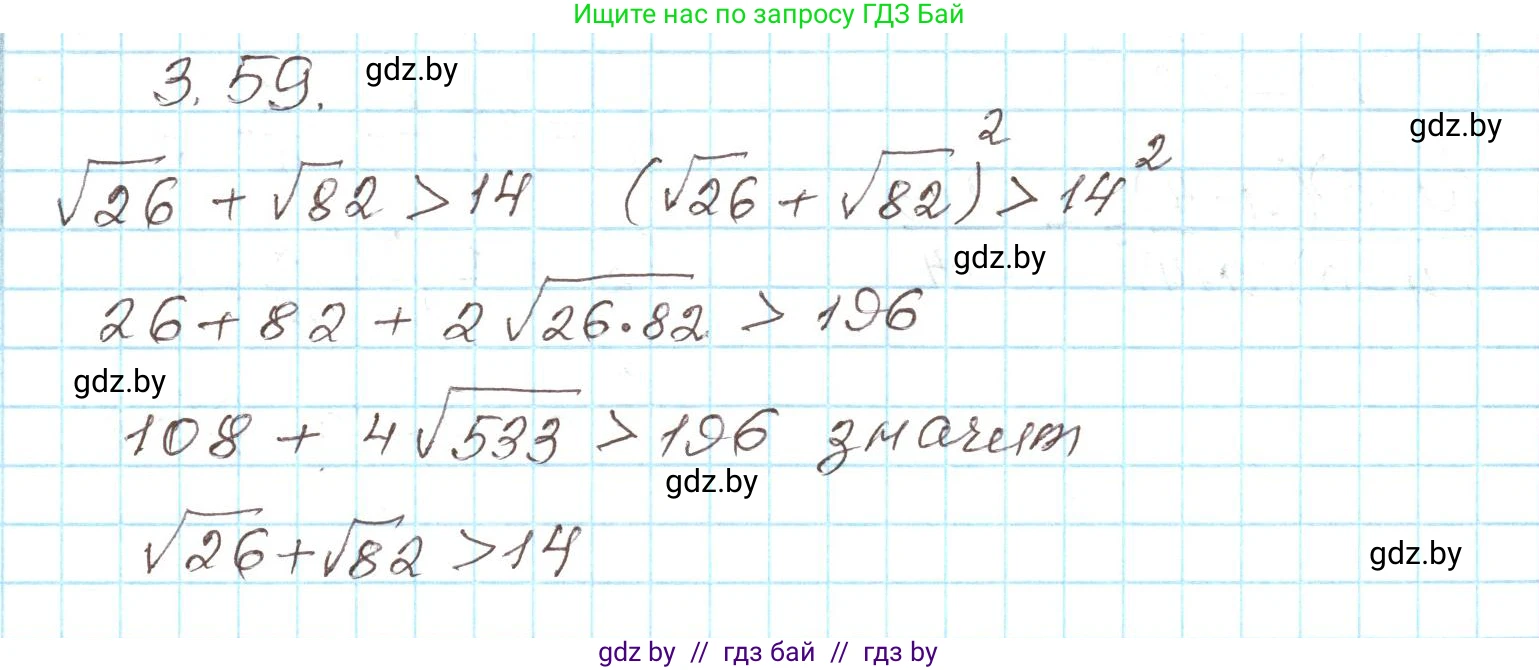 Ищите нас по запросу ГДЗ Бай
3.59. gdz.by
gdz.by
√26 + √82 > 14 (√26 + √82)² > 14²
gdz.by
26 + 82 + 2√26·82 > 196
gdz.by
108 + 4√533 > 196 значит
gdz.by
√26 + √82 > 14
gdz.by
gdz by // гдз бай // гдз by